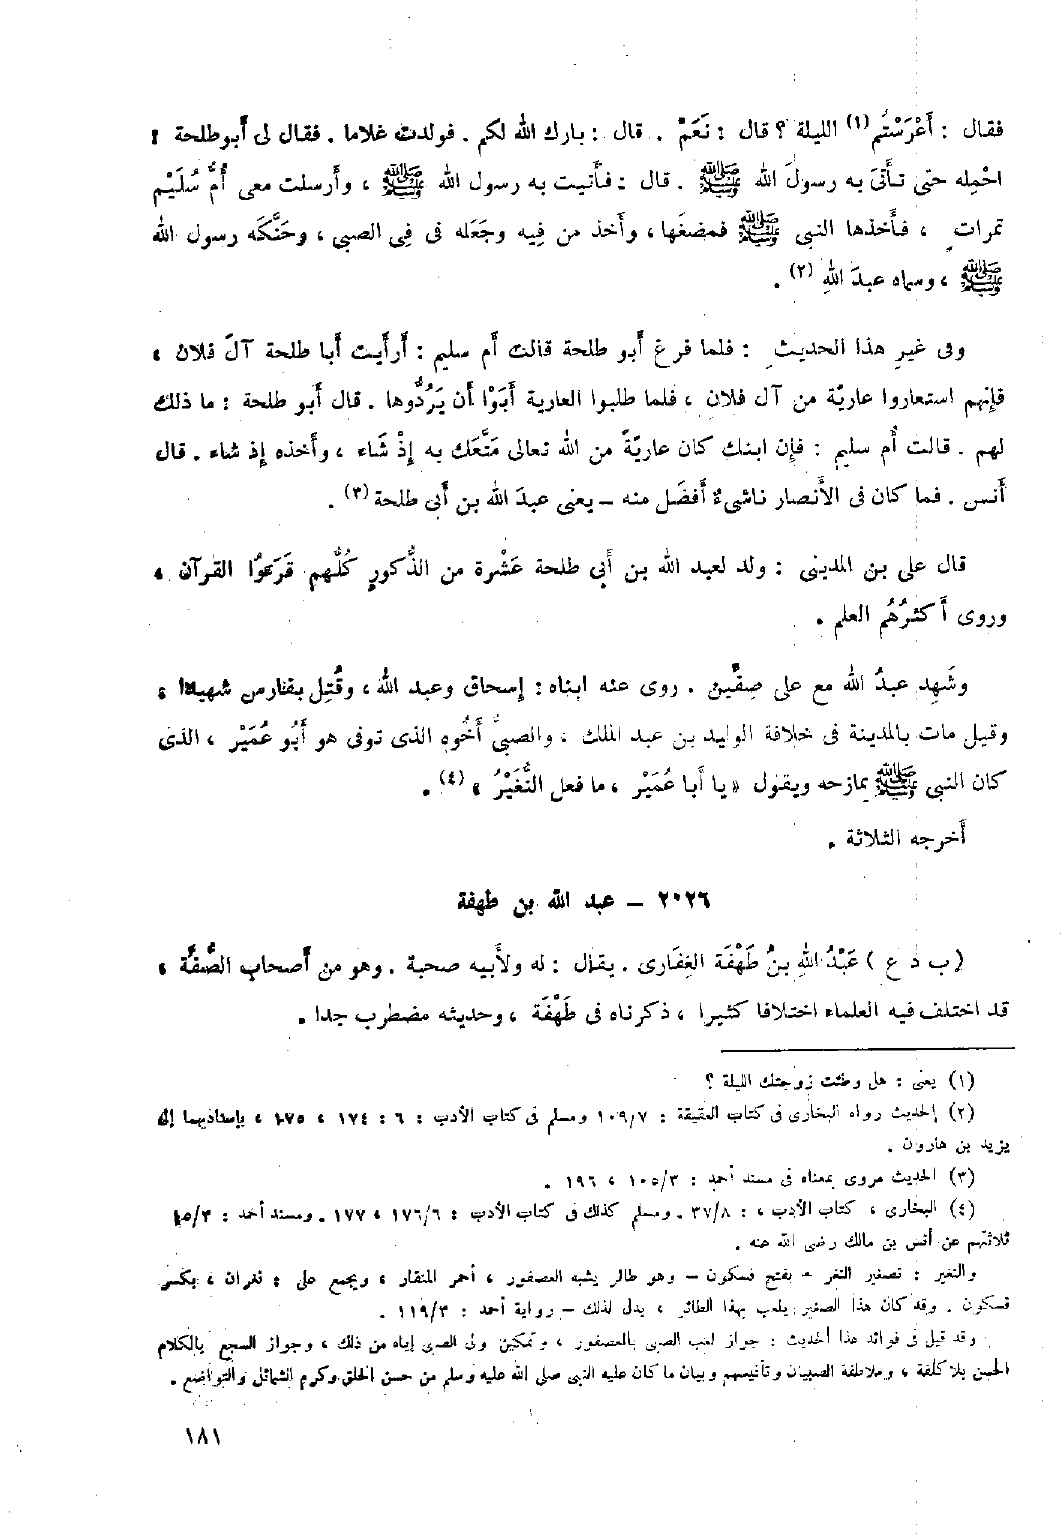 فقال : أَعْرَسْتُم (١) الليلة ؟ قال : نَعَمْ . قال : بارك الله لكم . فولدت غلاما . فقال لى أَبو طلحة :
احْمِله حتى تأْتىَ به رسولَ الله ﷺ . قال : فأَتيت به رسول الله ﷺ ، وأَرسلت معى أُمُّ سُلَيْم
تمرات ٍ ، فأَخذها النبى ﷺ فمضغَها ، وأَخذ من فِيه وجَعَله فى فِى الصبى ، وحَنَّكَه رسول الله
ﷺ ، وسماه عبدَ اللهِ (٢) .
وفى غيرِ هذا الحديثِ : فلما فرغ أَبو طلحة قالت أُم سليم : أَرأَيت أَبا طلحة آلَ فلان ،
فإِنهم استعاروا عاريّة من آل فلان ، فلما طلبوا العارية أَبَوْا أَن يَرُدُّوها . قال أَبو طلحة : ما ذلك
لهم . قالت أُم سليم : فإِن ابنك كان عاريّةً من الله تعالى مَتَّعَك به إِذْ شَاء ، وأَخذه إِذ شاء . قال
أَنس . فما كان فى الأَنصار ناشىءٌ أَفضَل منه – يعنى عبدَ الله بن أَبى طلحة (٣) .
قال على بن المدينى : ولد لعبد الله بن أَبى طلحة عَشْرة من الذُّكورِ كُلُّهم قَرَءُوا القرآن ،
وروى أَكثرُهُم العلم .
وشَهِد عبدُ الله مع على صِفِّين . روى عنه ابناه : إِسحاق وعبد الله ، وقُتِل بفارس شهيدا ،
وقيل مات بالمدينة فى خلافة الوليد بن عبد الملك ، والصبىُّ أَخُوه الذى توفى هو أَبُو عُمَيْر ، الذى
كان النبى ﷺ يمازحه ويقول « يا أَبا عُمَيْر ، ما فعل النُّغَيْرُ » (٤) .
أَخرجه الثلاثة .
٢٠٢٦ – عبد الله بن طهفة
( ب د ع ) عَبْدُ اللهِ بنُ طَهْفَة الغِفَارى . يقال : له ولأَبيه صحبة . وهو من أَصحابِ الصُّفَّة ،
قد اختلف فيه العلماء اختلافا كثيرا ، ذكرناه فى طَهْفَة ، وحديثه مضطرب جدا .
(١) يعنى : هل وطئت زوجتك الليلة ؟
(٢) الحديث رواه البخارى فى كتاب العقيقة : ٧/١٠٩ ومسلم فى كتاب الأدب : ٦ : ١٧٤ ، ١٧٥ ، بإسناديهما إلى
يزيد بن هارون .
(٣) الحديث مروى بمعناه فى مسند أحمد : ٣/١٠٥ ، ١٩٦ .
(٤) البخارى ، كتاب الأدب ، : ٨/٣٧ . ومسلم كذلك فى كتاب الأدب : ٦/١٧٦ ، ١٧٧ . ومسند أحمد : ٣/١١٥
ثلاثتهم عن أنس بن مالك رضى الله عنه .
والنغير : تصغير النغر – بفتح فسكون – وهو طائر يشبه العصفور ، أحمر المنقار ، ويجمع على : نغران ، بكسر
فسكون . وقد كان هذا الصغير يلعب بهذا الطائر ، يدل لذلك – رواية أحمد : ٣/١١٩ .
وقد قيل فى فوائد هذا الحديث : جواز لعب الصبى بالعصفور ، وتمكين ولى الصبى إياه من ذلك ، وجواز السجع بالكلام
الحسن بلا كلفة ، وملاطفة الصبيان وتأنيسهم وبيان ما كان عليه النبى صلى الله عليه وسلم من حسن الخلق وكرم الشمائل والتواضع .
١٨١